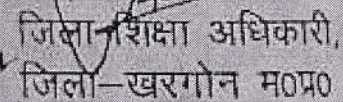 जिला शिक्षा अधिकारी,
जिला–खरगोन म0प्र0